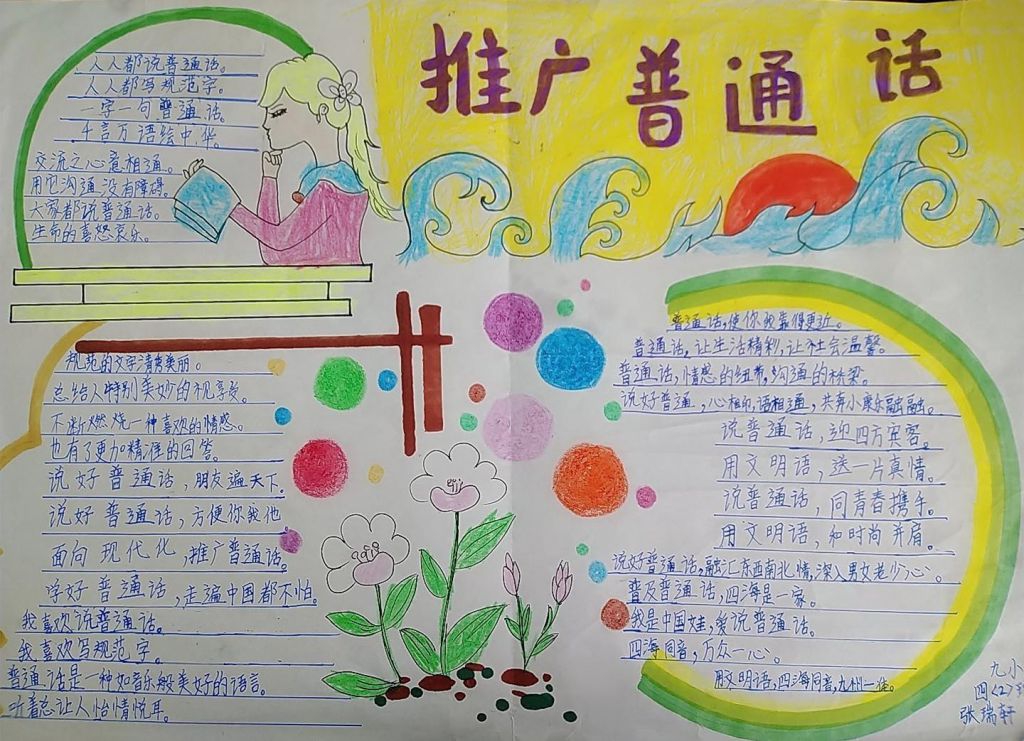 推广普通话
人人都说普通话。
人人都写规范字。
一字一句普通话。
千言万语绘中华。
交流之心意相通。
用它沟通没有障碍。
大家都说普通话。
生命的喜怒哀乐。
规范的文字清秀美丽。
总给人特别美妙的视享受。
不断燃烧一种喜欢的情感。
也有了更加精准的回答。
说好普通话，朋友遍天下。
说好普通话，方便你我他。
面向现代化，推广普通话。
学好普通话，走遍中国都不怕。
我喜欢说普通话。
我喜欢写规范字。
普通话是一种如音乐般美好的语言。
听着总让人怡情悦耳。
普通话，使你我靠得更近。
普通话，让生活精彩，让社会温馨。
普通话，情感的纽带，沟通的桥梁。
说好普通，心相印，语相通，共奔小康乐融融。
说普通话，迎四方宾客。
用文明语，送一片真情。
说普通话，同青春携手。
用文明语，和时尚并肩。
说好普通话，融汇东西南北情，深入男女老少心。
普及普通话，四海是一家。
我是中国娃，爱说普通话。
四海同音，万众一心。
用文明语，四海同音，九州一佳。
九小
四（2）
张瑞轩